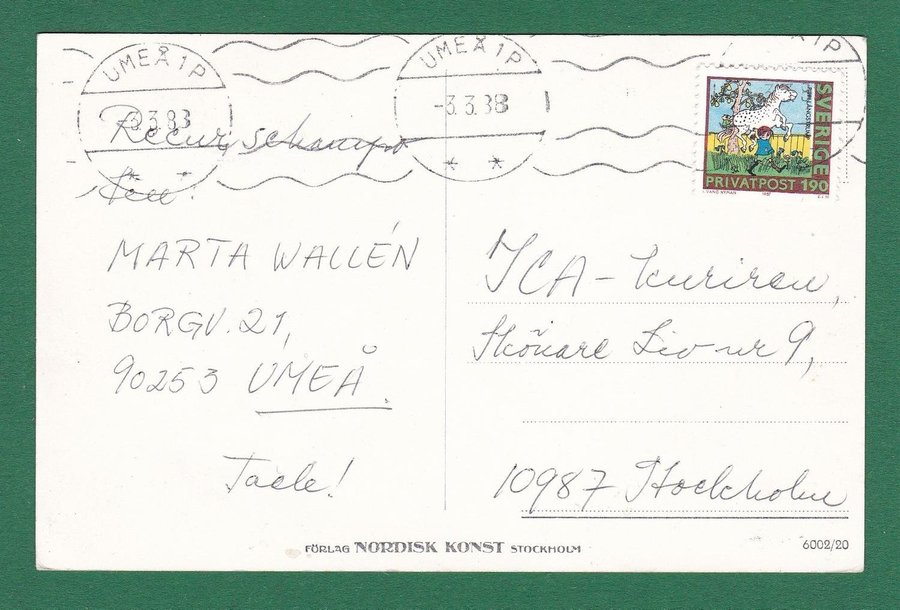 UMEÅ 1 P
-3.3.83
UMEÅ 1 P
-3.3.83
Å 1 P
SVERIGE
PRIVATPOST 190
Recur, schampo
MARTA WALLÉN
BORGV. 21,
90253 UMEÅ.
Tack!
ICA-kuriren,
Skönare Liv nr 9,
10987 Stockholm
FÖRLAG NORDISK KONST STOCKHOLM
6002/20